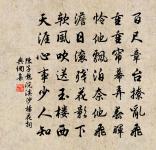 百尺章臺撩亂吹
重重帘幕弄春暉
憐他飄泊奈他飛
澹日滾殘花影下
軟風吹送玉樓西
天涯心事少人知
陳子龍浣溪沙楊花詞